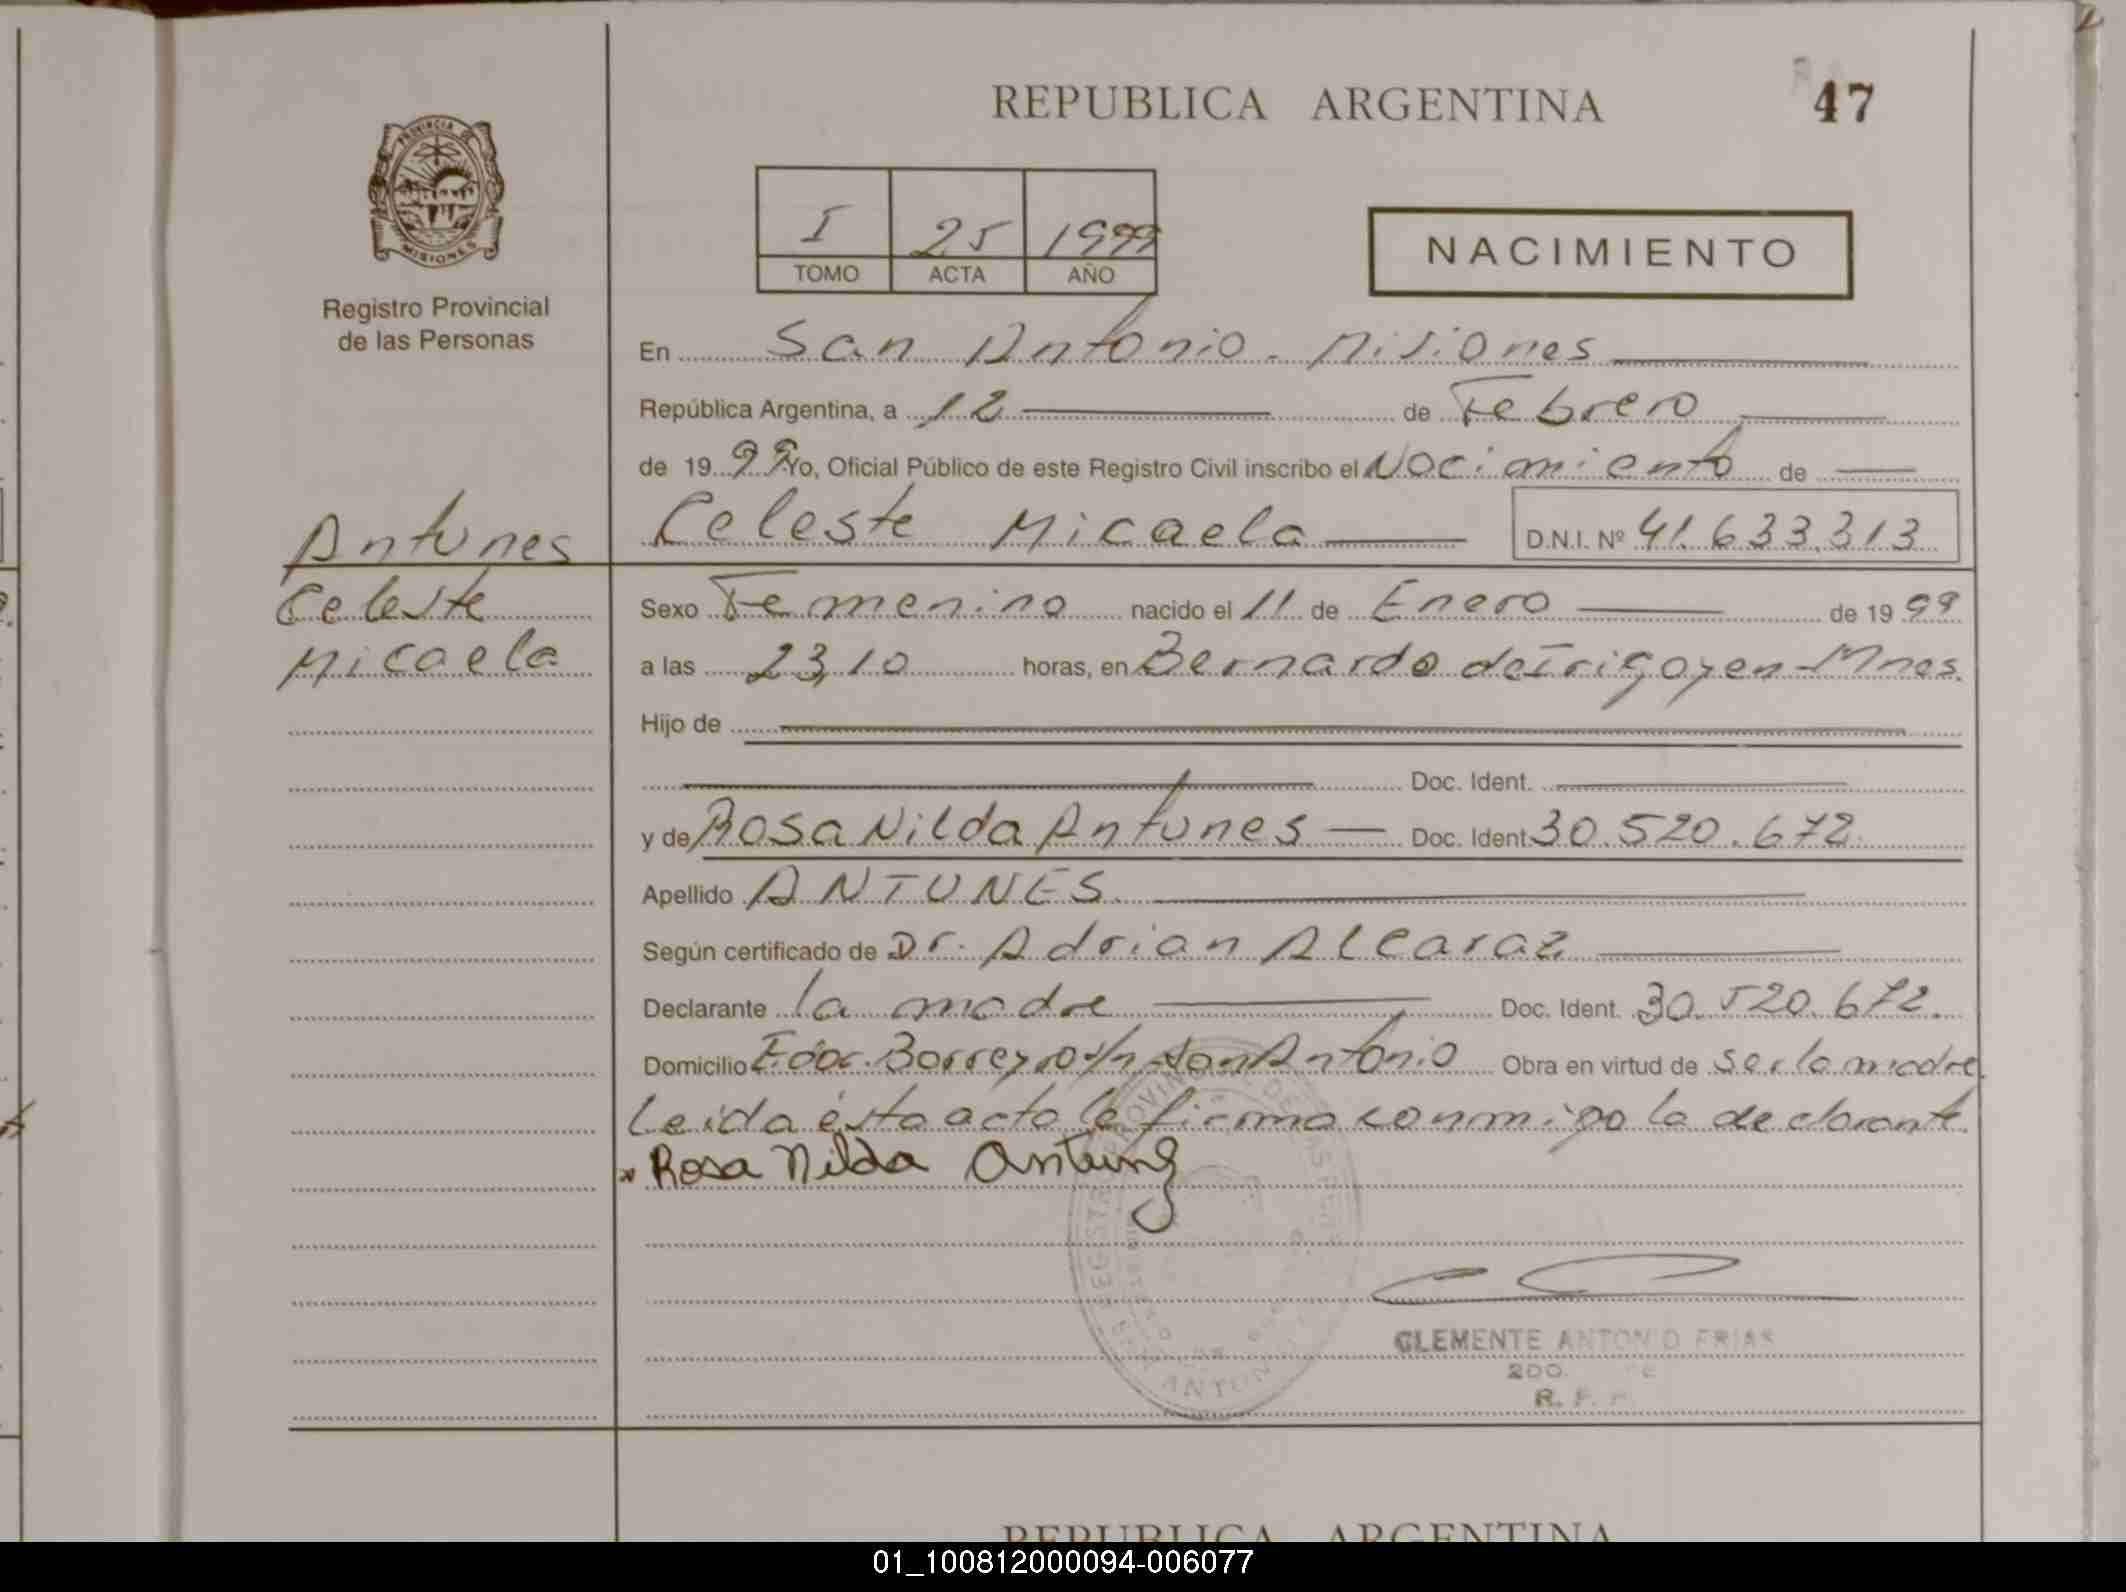 REPUBLICA ARGENTINA
47
PROVINCIA DE
MISIONES
Registro Provincial
de las Personas
I 25 1999
TOMO ACTA AÑO
NACIMIENTO
En San Antonio - Misiones
República Argentina, a 12 de Febrero
de 1999 Yo, Oficial Público de este Registro Civil inscribo el Nacimiento de
Celeste Micaela D.N.I. Nº 41.633.313
Antunes
Celeste
Micaela
Sexo Femenino nacido el 11 de Enero de 1999
a las 23,10 horas, en Bernardo de Irigoyen - Mnes.
Hijo de
Doc. Ident.
y de Rosa Nilda Antunes Doc. Ident. 30.520.672
Apellido ANTUNES
Según certificado de Dr. Adrian Alcaraz
Declarante la madre Doc. Ident. 30.520.672.
Domicilio Borreyro s/n San Antonio Obra en virtud de ser la madre
Leida ésta acta la firma conmigo la declarante.
Rosa Nilda Antunez
CLEMENTE ANTONIO FRIAS
2DO.
R. P. P.
REPUBLICA ARGENTINA
01_100812000094-006077